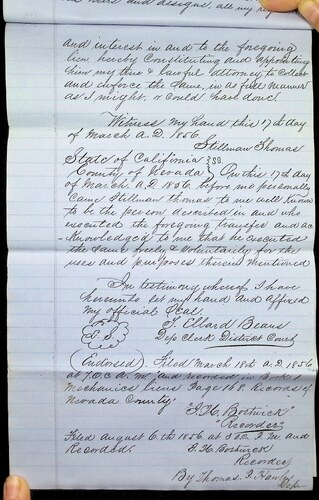 heirs and assigns, all my right
and interest in and to the foregoing
lien hereby Constituting and appointing
him my true & lawful attorney, to Collect
and enforce the Same, in as full manner
as I might, or Could have done.
Witness my hand this 17th day
of March A.D. 1856.
Stillman Thomas
State of California } SS.
County of Nevada } On this 17th day
of March, A.D 1856, before me personally
Came Stillman Thomas to me well known
to be the person described in and who
executed the foregoing transfer and ac
-Knowledged to me that he executed
the Same freely & voluntarily for the
uses and purposes therein mentioned
In testimony whereof I have
hereunto set my hand and affixed
my official Seal.
Beans
Dep Clerk District Court
(Endorsed) Filed March 18th A.D. 1856,
at A.M. and recorded in Book 1
Mechanics liens Page 168, Records of
Nevada County
Bostwick
Recorder
Filed August 6th 1856 at P.M. and
Recorded.
Bostwick
Recorder
By Thomas Hawley